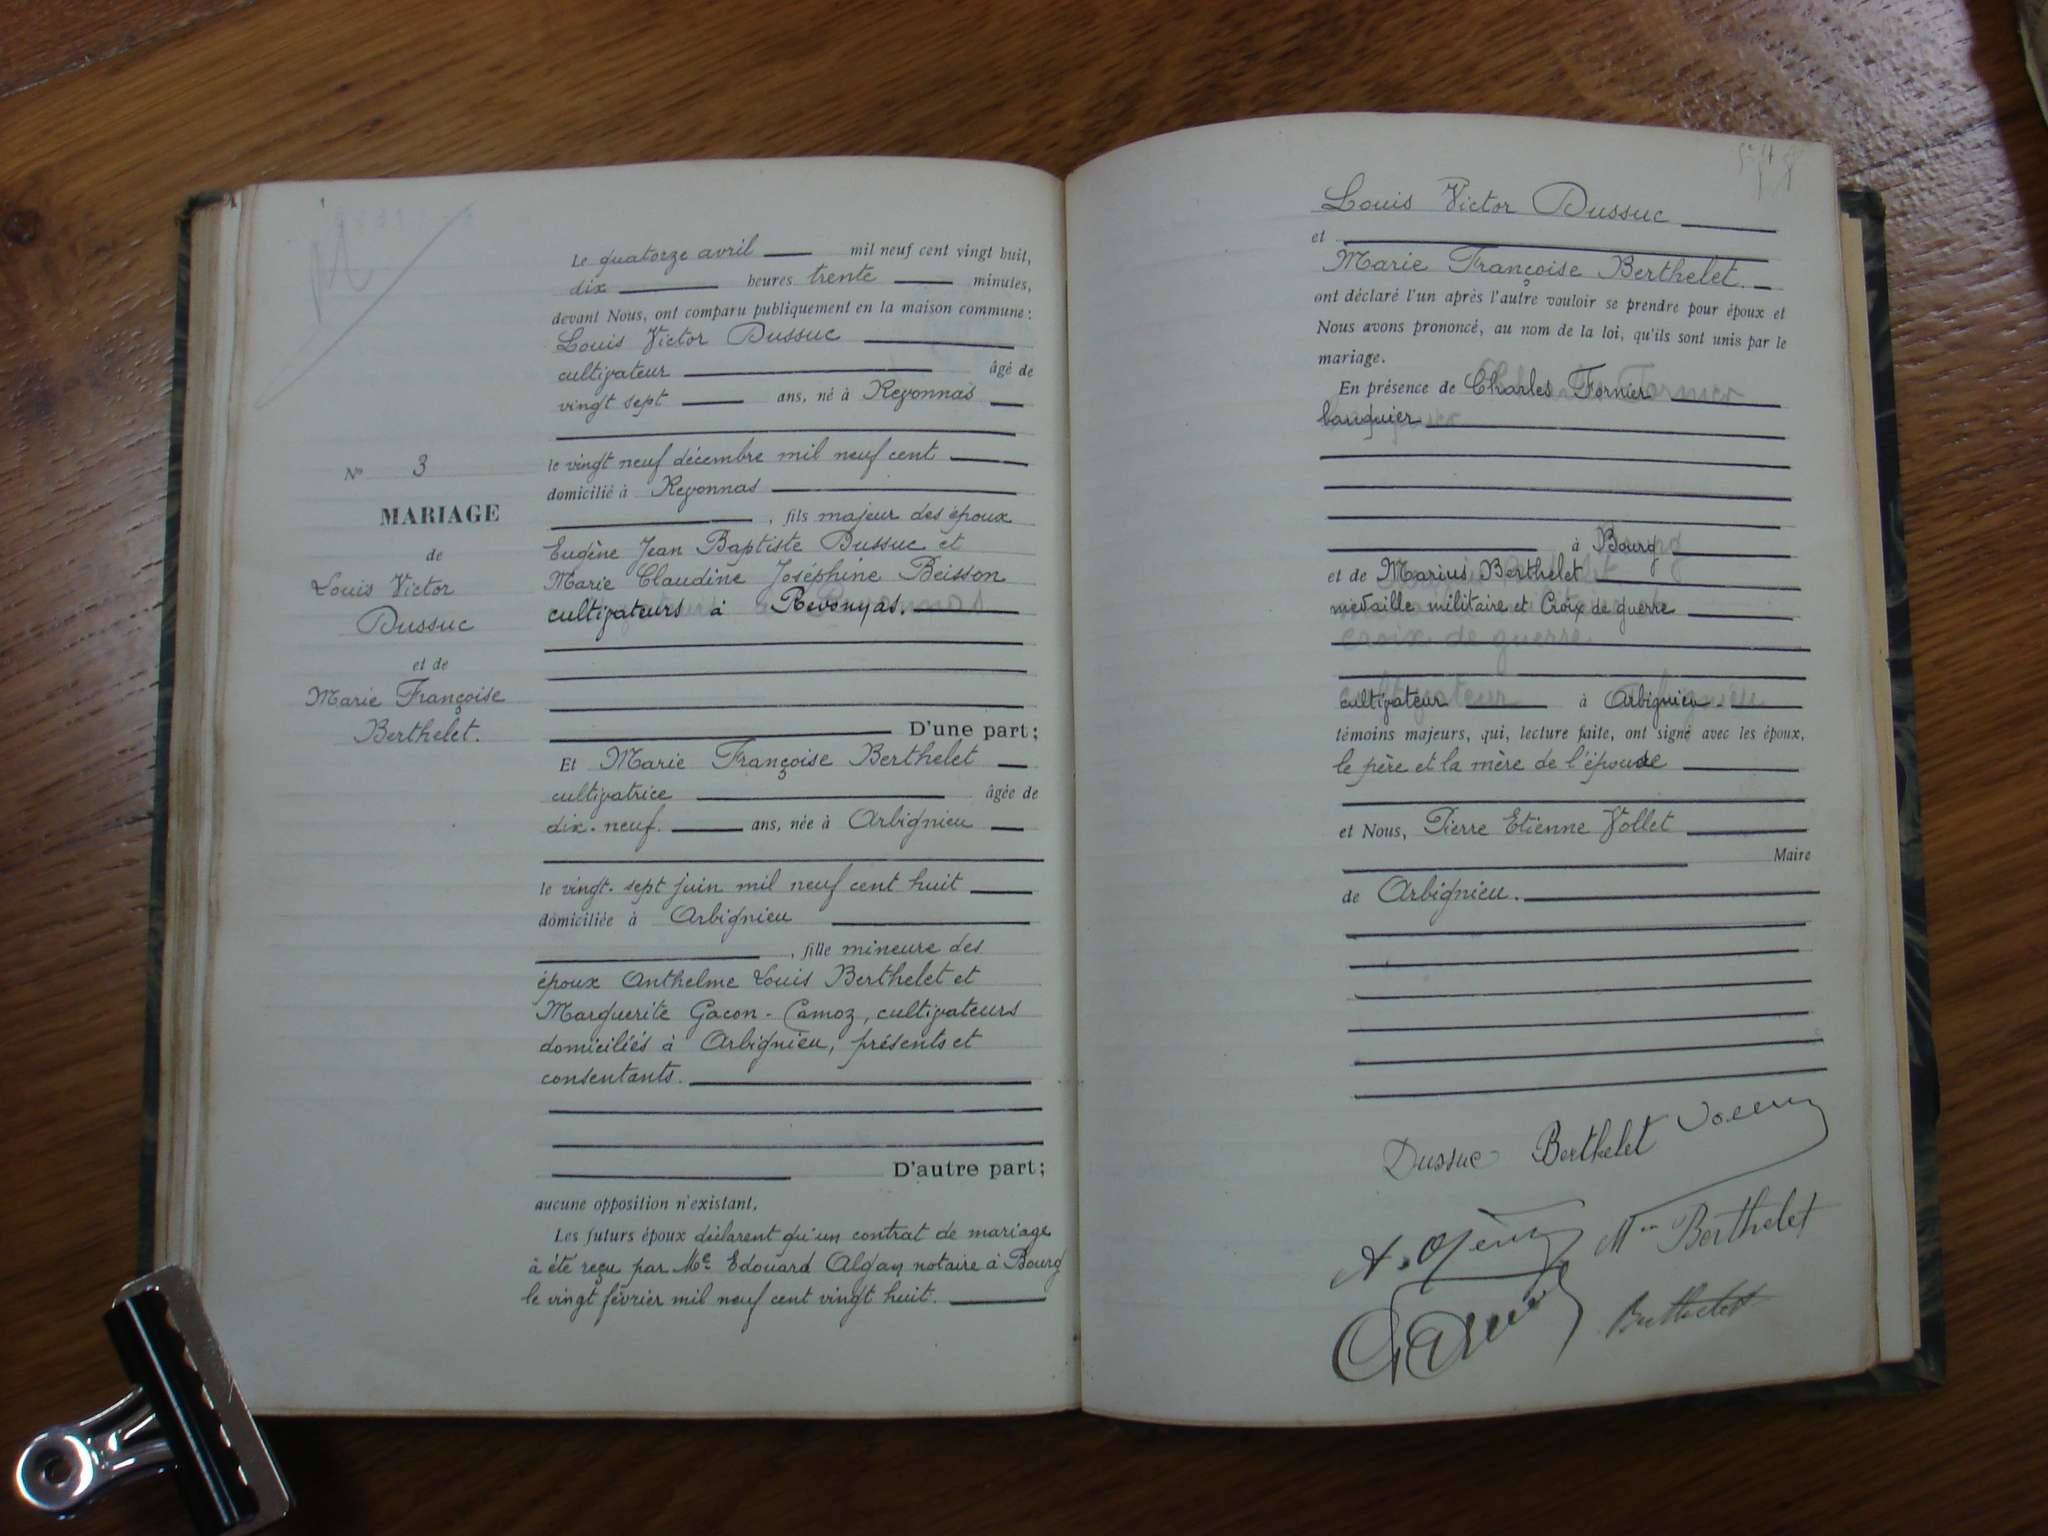 Le quatorze avril mil neuf cent vingt huit,
dix heures trente minutes,
devant Nous, ont comparu publiquement en la maison commune :
Louis Victor Dussuc
cultivateur âgé de
vingt sept ans, né à Revonnas
le vingt neuf décembre mil neuf cent
domicilié à Revonnas
, fils majeur des époux
Eugène Jean Baptiste Dussuc et
Marie Claudine Joséphine Beisson
cultivateurs à Revonnas.
D'une part ;
Nº 3
MARIAGE
de
Louis Victor
Dussuc
et de
Marie Françoise
Berthelet.
Et Marie Françoise Berthelet
cultivatrice âgée de
dix-neuf. ans, née à Arbignieu
le vingt-sept juin mil neuf cent huit
domiciliée à Arbignieu
, fille mineure des
époux Anthelme Louis Berthelet et
Marguerite Gacon-Camoz, cultivateurs
domiciliés à Arbignieu, présents et
consentants.
D'autre part ;
aucune opposition n'existant,
Les futurs époux déclarent qu'un contrat de mariage
à été reçu par Me Edouard notaire à Bourg
le vingt février mil neuf cent vingt huit.
Louis Victor Dussuc
et
Marie Françoise Berthelet.
ont déclaré l'un après l'autre vouloir se prendre pour époux et
Nous avons prononcé, au nom de la loi, qu'ils sont unis par le
mariage.
En présence de Charles Fornier
banquier
à Bourg
et de Marius Berthelet
médaille militaire et Croix de guerre
croix de guerre
cultivateur à Arbignieu.
témoins majeurs, qui, lecture faite, ont signé avec les époux,
le père et la mère de l'épouse
et Nous, Pierre Etienne Vollet
Maire
de Arbignieu.
Dussuc Berthelet
Berthelet
Berthelet